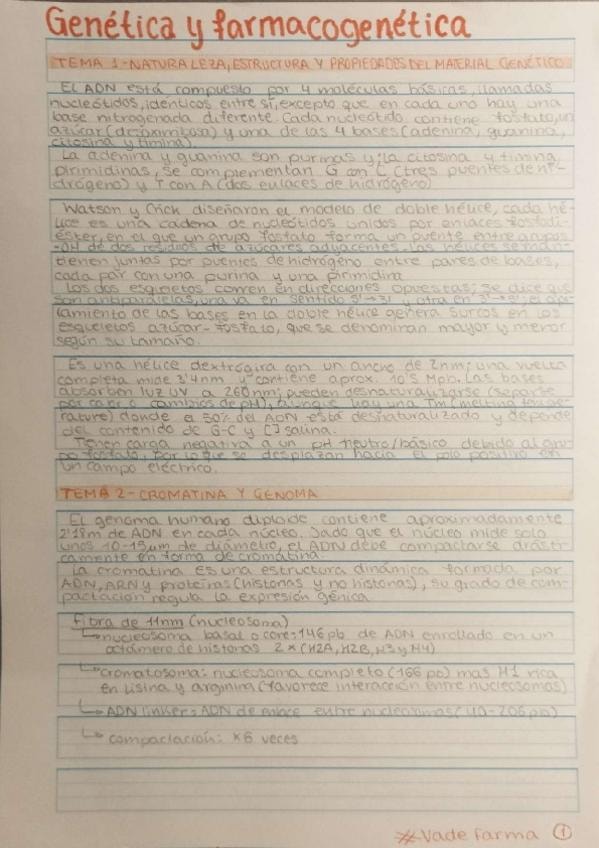 Genética y farmacogenética
TEMA 1-NATURALEZA, ESTRUCTURA Y PROPIEDADES DEL MATERIAL GENÉTICO
El ADN está compuesto por 4 moléculas básicas, llamadas
nucleótidos, idénticos entre sí, excepto que en cada uno hay una
base nitrogenada diferente. Cada nucleótido contiene fosfato, un
azúcar (desoxirribosa) y una de las 4 bases (adenina, guanina,
citosina y timina).
La adenina y guanina son purinas y la citosina y timina
pirimidinas, se complementan G con C (tres puentes de hi-
drógeno) y T con A (dos enlaces de hidrógeno)
Watson y Crick diseñaron el modelo de doble hélice, cada hé-
lice es una cadena de nucleótidos unidos por enlaces fosfodi-
éster, en el que un grupo fosfato forma un puente entre grupos
-OH de dos residuos de azúcares adyacentes. Las hélices se man-
tienen juntas por puentes de hidrógeno entre pares de bases,
cada par con una purina y una pirimidina
Los dos esqueletos corren en direcciones opuestas; se dice que
son antiparalelas, una va en sentido 5'→3' y otra en 3'→5'; el api-
lamiento de las bases en la doble hélice genera surcos en los
esqueletos azúcar-fosfato, que se denominan mayor y menor
según su tamaño.
Es una hélice dextrógira con un ancho de 2nm; una vuelta
completa mide 3'4nm y contiene aprox. 10'5 Mpb. Las bases
absorben luz UV a 260nm; pueden desnaturalizarse (separarse
por calor o cambios de pH), aunque hay una Tm (melting tempe-
rature) donde el 50% del ADN está desnaturalizado y depende
del contenido de G-C y [] salina.
Tienen carga negativa a un pH neutro/básico debido al gru-
po fosfato, por lo que se desplazan hacia el polo positivo en
un campo eléctrico.
TEMA 2-CROMATINA Y GENOMA
El genoma humano diploide contiene aproximadamente
2'18m de ADN en cada núcleo. Dado que el núcleo mide solo
unos 10-15μm de diámetro, el ADN debe compactarse drásti-
camente en forma de cromatina.
La cromatina es una estructura dinámica formada por
ADN, ARN y proteínas (histonas y no histonas), su grado de com-
pactación regula la expresión génica
Fibra de 11nm (nucleosoma)
↳ nucleosoma basal o core: 146 pb de ADN enrollado en un
octámero de histonas 2x(H2A, H2B, H3 y H4)
↳ cromatosoma: nucleosoma completo (166 pb) mas H1 rica
en lisina y arginina (favorece interacción entre nucleosomas)
↳ ADN linker: ADN de enlace entre nucleosomas (40-206 pb)
↳ compactación: x6 veces
#Vade farma 1